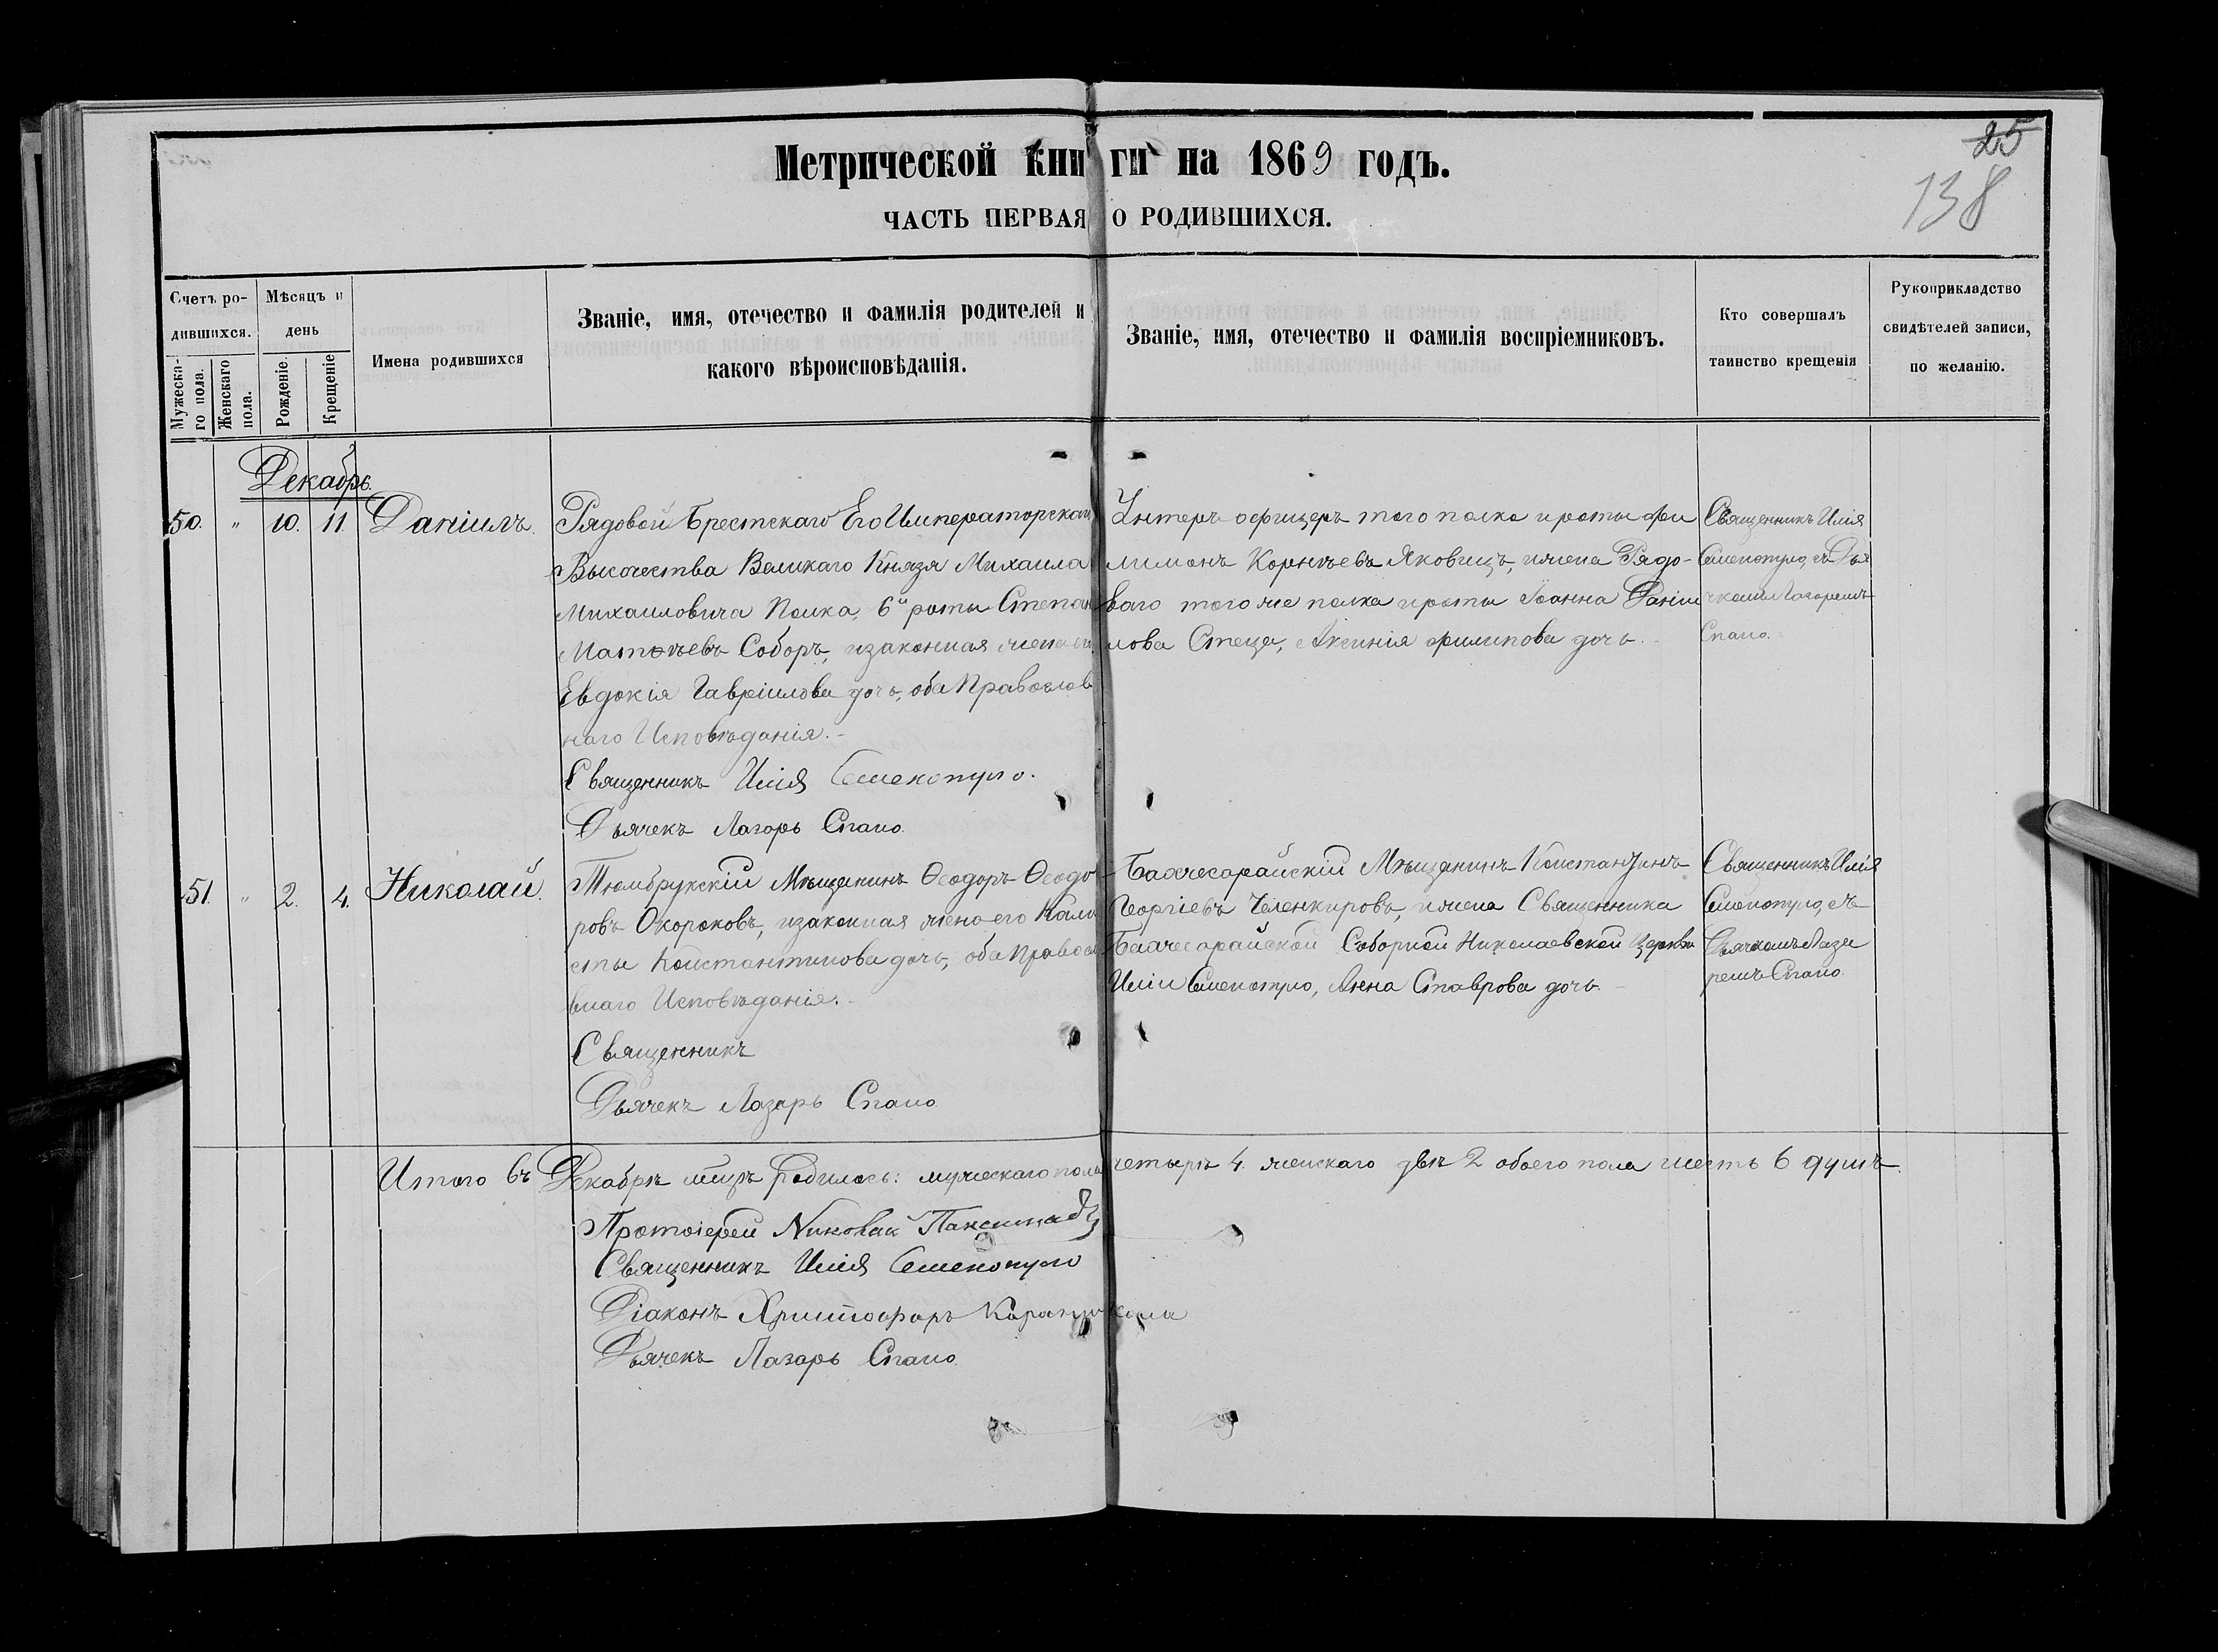 25
138
Метрической книги на 1869 годъ.
ЧАСТЬ ПЕРВАЯ О РОДИВШИХСЯ.
Счетъ родившихся.
Мужескаго пола.
Женскаго пола.
Мѣсяцъ и день
Рожденіе.
Крещеніе
Имена родившихся
Званіе, имя, отечество и фамилія родителей и
какого вѣроисповѣданія.
Званіе, имя, отечество и фамилія воспріемниковъ.
Кто совершалъ
таинство крещенія
Рукоприкладство
свидѣтелей записи,
по желанію.
Декабрь.
50. " 10. 11. Даніилъ.
Рядовой Брестскаго Его Императорскаго
Высочества Великаго Князя Михаила
Михаиловича Полка, 6й роты Степан
Матѳѣевъ Соборъ, и законная жена его
Евдокія Гавріилова дочь, оба Православ
наго Исповѣданія.-
Священникъ Илія Семенопуло.
Дьячекъ Лазарь Спаио.
Унтеръ офицеръ того полка и роты Фи
лимонъ Корнѣевъ Яковицъ, и жена Рядо-
ваго того же полка и роты Іоанна Даніи
лова Стеца, Аксинія Филипова дочь.-
Священникъ Илія
Семенопуло, съ Дья
чкомъ Лазаремъ
Спаио.
51. " 2. 4. Николай.
Тюмбрукскій Мѣщанинъ Ѳеодоръ Ѳеодо
ровъ Окороковъ, и законная жена его Кали
спы Константинова дочь, оба Правосла
внаго Исповѣданія.-
Священникъ
Дьячекъ Лазарь Спаио
Бахчесарайскій Мѣщанинъ Константинъ
Георгіевъ Челенкировъ, и жена Священника
Бахчесарайской Соборной Николаевской Церкви
Иліи Семенопуло, Анна Ставрова дочь.-
Священникъ Илія
Семенопуло, съ
Дьячкомъ Лаза
ремъ Спаио.
Итого въ Декабрѣ мцѣ родилось: мужескаго пола четыре 4. женскаго двѣ 2 обоего пола шесть 6 душъ.
Протоіерей Николай
Священникъ Илія Семенопуло
Діаконъ Христофоръ
Дьячекъ Лазарь Спаио.